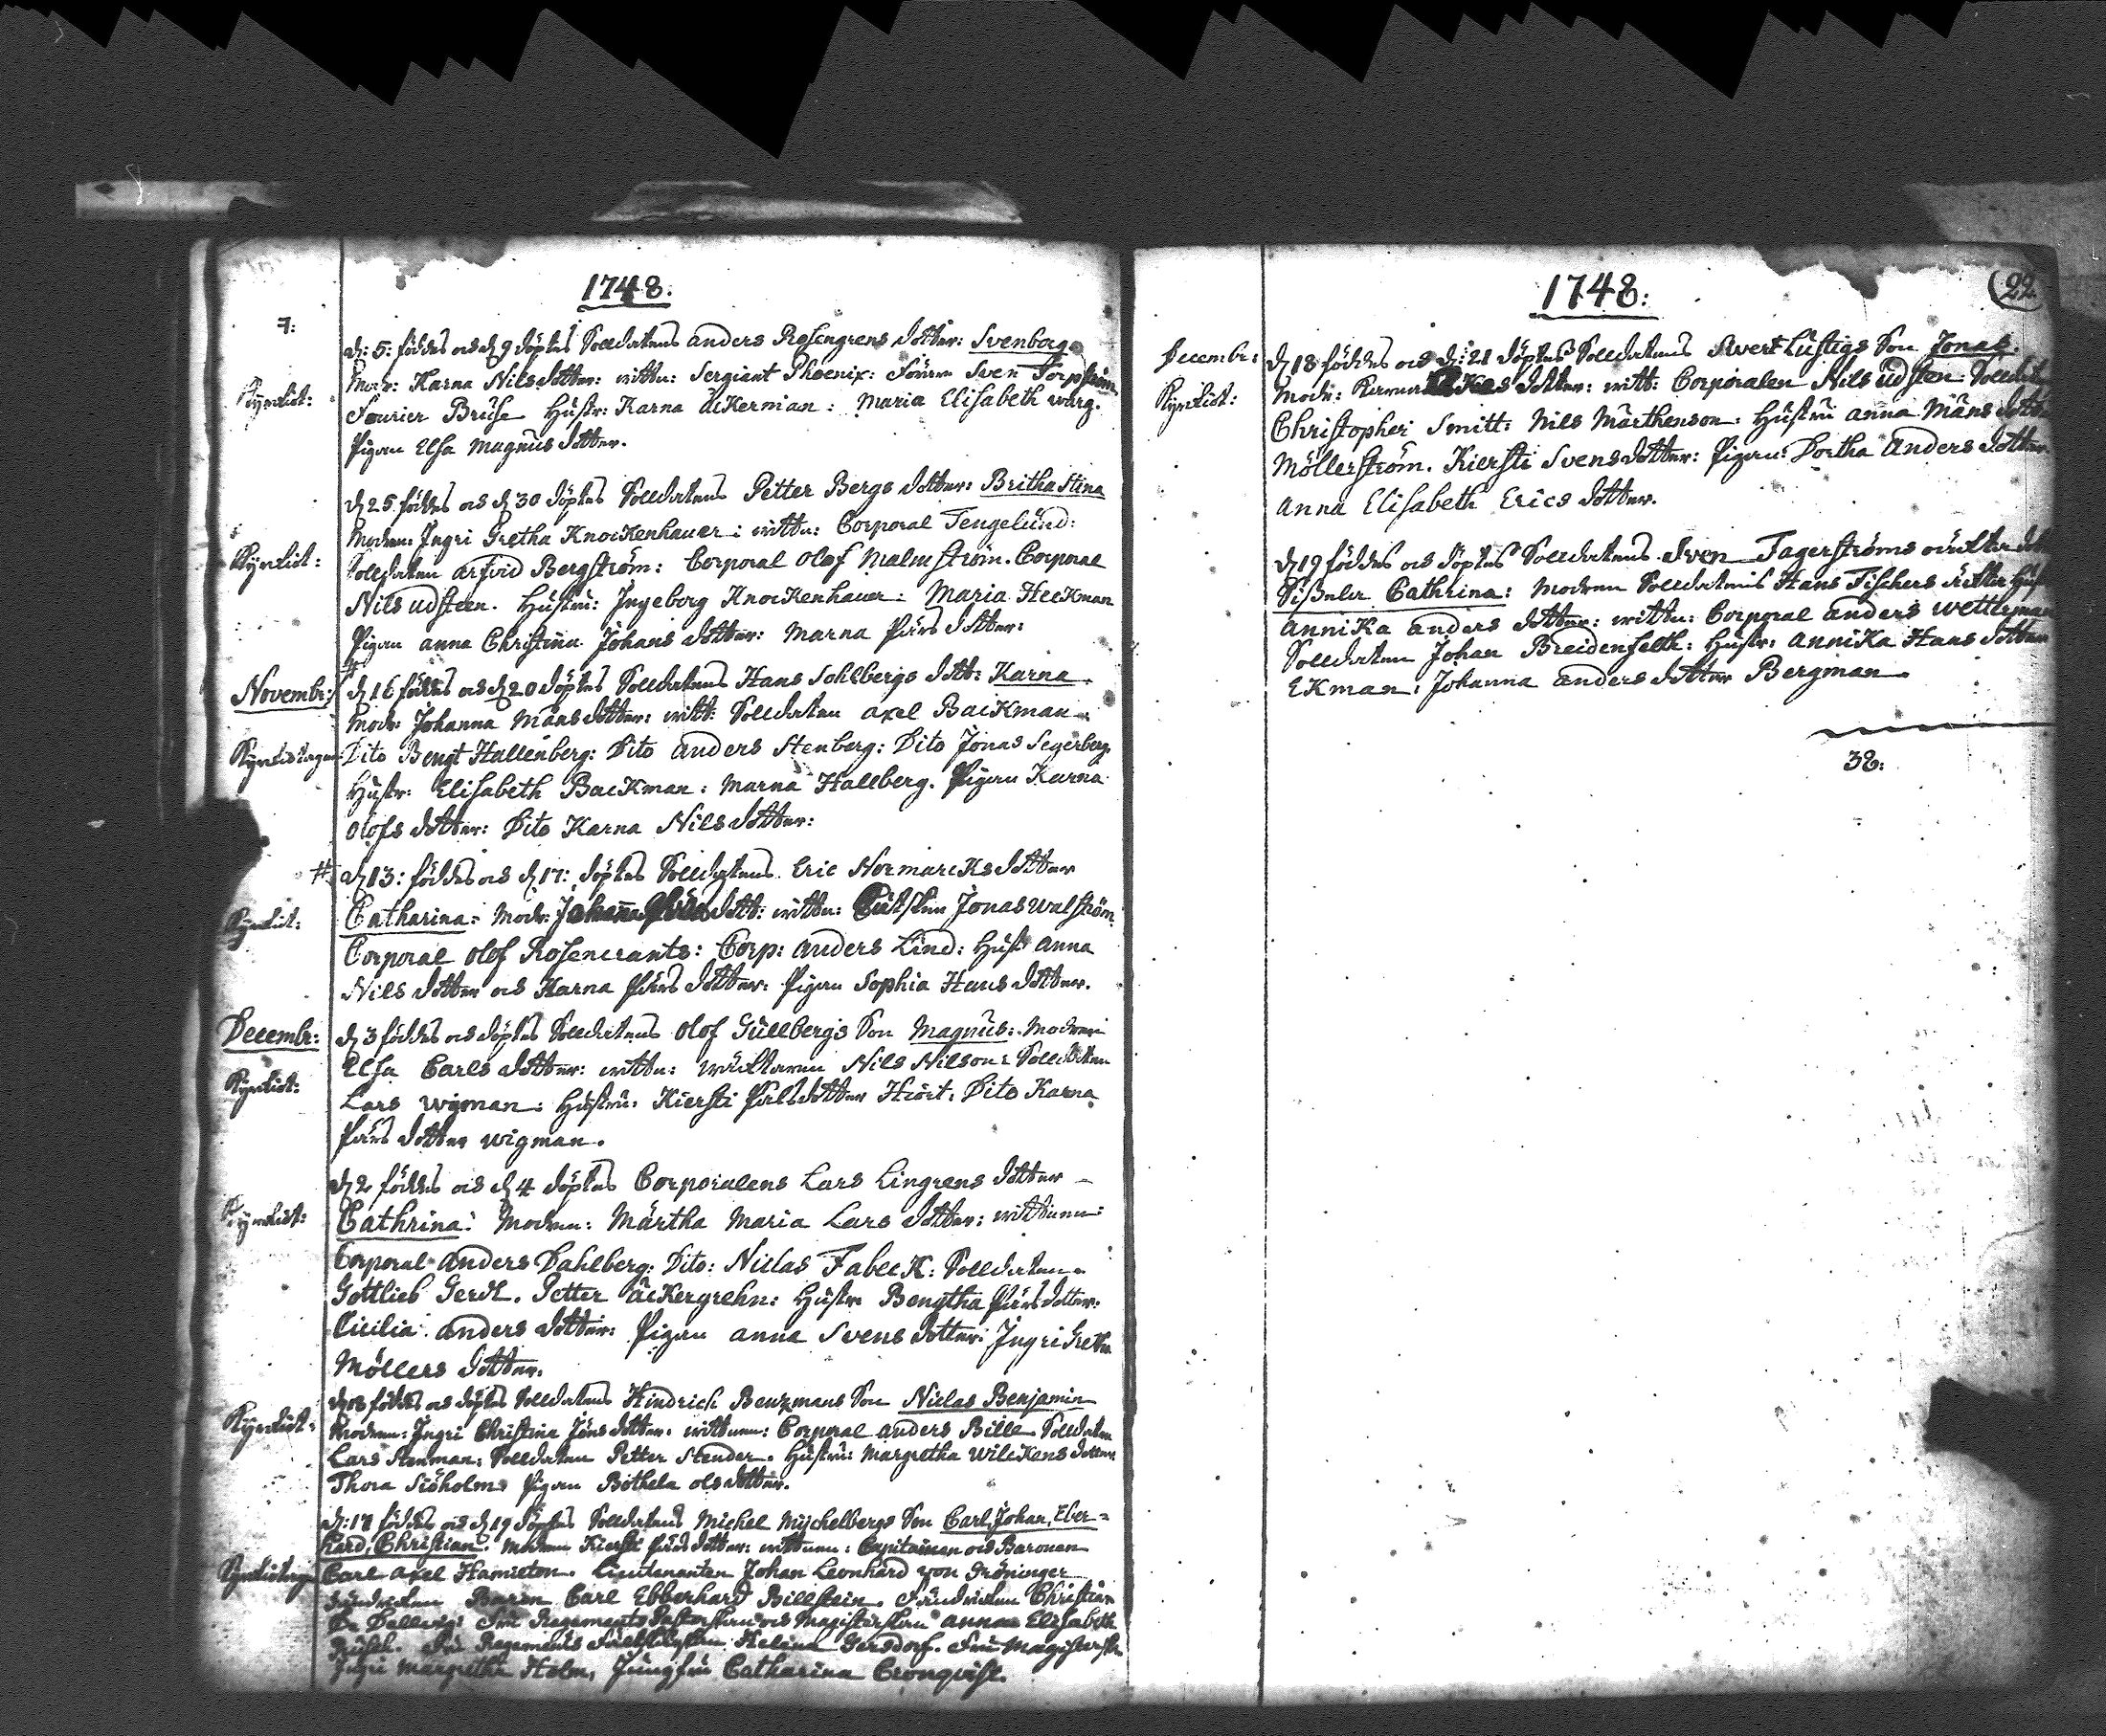 1748.
7:
d: 5: föddes och d 9 döptes Solldatens anders Rosengrens dotter: Svenborg
Kyrkiot:
Modr: Karna Nils dotter: wittn: Sergiant Phoenix: Förarn Sven Torpström
Fourier Bruse Hustr: Karna åkerman: Maria Elisabeth warg.
Pigan Elsa Magnus dotter.
d 25 föddes och d 30 döptes Solldatens Petter Bergs dotter: Britha Stina
Modren: Jngri Gretha Knockenhauer: wittn: Corporal Tengelund:
Kyrkiot:
Solldaten arfvid Bergström: Corporal Olof Malmström. Corporal
Nils udsteen. Hustru: Jngeborg Knockenhauer: Maria Heckman
Pigan anna Christina Johans dotter: Marna Pärs dotter:
#
Novembr:
d 16 föddes och d 20 döptes Solldatens Hans Sohlbergs dott: Karna.
Modr: Johanna Måns dotter: witt: Solldaten axel Backman
Kyrkiotagen:
Dito Bengt Hallenberg: Dito anders Stenberg: Dito Jonas Segerberg
Hustr: Elisabeth Backman: Marna Hallberg. Pigan Karna
Olofs dotter: Dito Karna Nils dotter:
#
d 13: föddes och d 17: döptes Solldatens Eric Normarcks dotter
Kyrkiot:
Catharina: Modr: Johanna dott: wittn: Jonas walström
Corporal Olof Rosencrants: Corp: anders Lind: Hust anna
Nils dotter och Karna Pärs dotter: Pigan Sophia Hans dotter.
Decembr:
d 3 föddes och döptes Solldatens Olof Gullbergs Son Magnus: Modren
Elsa Carls dotter: wittn: Nils Nilson: Solldaten
Kyrkiot:
Lars wigman: Hustru: Kiersti Påls dotter Hiort: Dito Karna
Pärs dotter wigman.
d 2 föddes och d 4 döptes Corporalens Lars Lingrens dotter
Kyrkiot:
Cathrina: Modren: Märtha Maria Lars dotter: wittnen:
Corporal anders Dahlberg: Dito: Niclas Fabeck: Solldaten
Gottlieb Gerdt. Petter åckergrehn: Hustr Bengtha Pärs dotter:
Cicilia anders dotter: Pigan anna Svens dotter: Jngri Gretha
Möllers dotter.
föddes och döptes Solldatens Hindrich Benzmans Son Niclas Benjamin
Kyrkiot:
Modren: Jngri Christina Jöns dotter. wittnen: Corporal anders Bille Solldaten
Lars Stenman: Solldaten Petter Stender. Hustru: Margretha Wilckens dotter
Thora Siöholm. Pigan Bothela ols dotter.
d: 17 föddes och d 19 döptes Solldatens Michel Mychelbergs Son Carl, Johan, Eber-
hard, Christian. Modren Kiersti Pärs dotter: wittnen: Capitainen och Baronen
Carl axel Hamilton. Lieutenanten Johan Leonhard von Gröninger
Fändricken Baron Carl Ebberhard Billstein. Fändricken Christian
De Fru Regements Pastorskan och Magisterskan anna Elisabeth
Fru Regements Fältskärskan Helena Gersdorf. Fru Magisterskan
Jngri Margretha Holm, Jungfru Catharina Cronqvist.
1748:
22
Decembr:
d 18 föddes och d: 21 döptes Solldatens Swert Lustigs Son Jonas.
Kyrkiot:
Modr: dotter: witt: Corporalen Nils udsten: Solldaten
Christopher Smitt: Nils Mårthenson: Hustru anna Måns dotter
Möllerström. Kiersti Svens dotter: Pigan: Dortha anders dotter
anna Elisabeth Erics dotter.
d 19 föddes och döptes Solldatens Sven Fagerströms oäckta dotter
Cathrina: Modren Solldatens Hans Fischers
annika anders dotter: wittn: Corporal anders Wetterman
Solldaten Johan Breidenfelth: Hustr: annika Hans dotter
Ekman: Johanna anders dotter Bergman.
38: